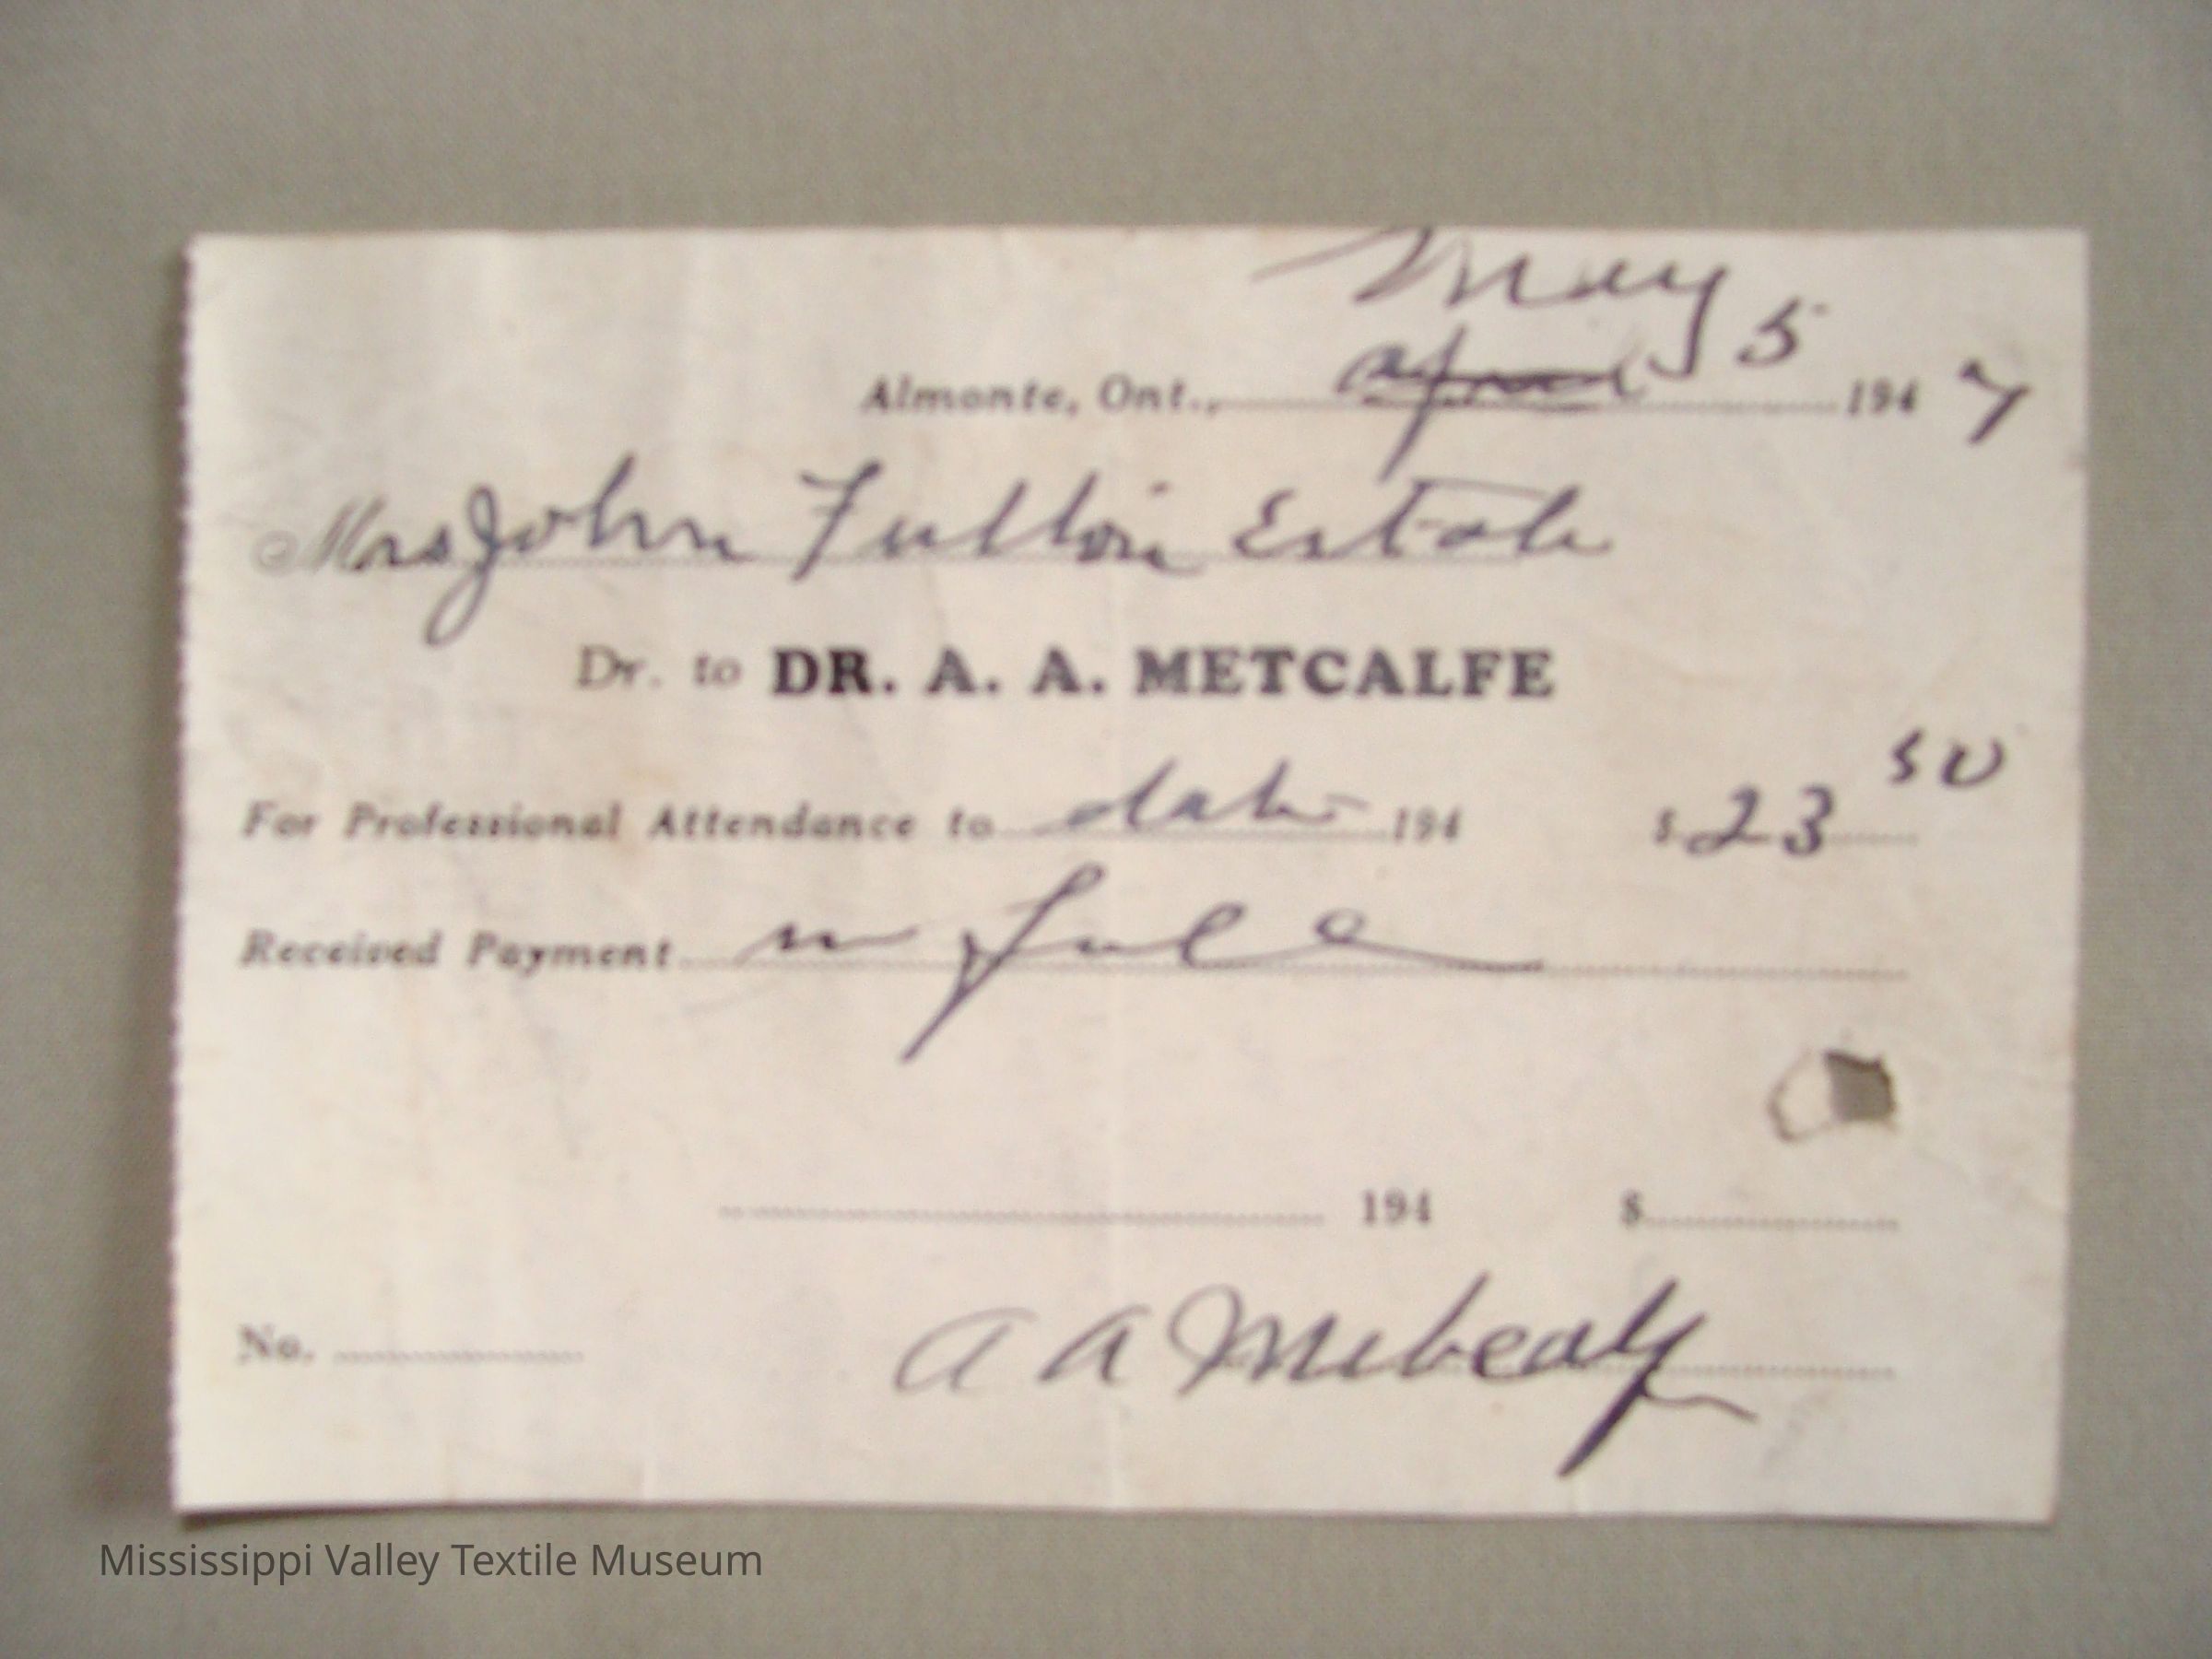 May 5
Almonte, Ont., April 194 7
Mrs John Fulton Estate
Dr. to DR. A. A. METCALFE
For Professional Attendance to date 194 $ 23 50
Received Payment in full
194 $
No. A A Metcalfe
Mississippi Valley Textile Museum